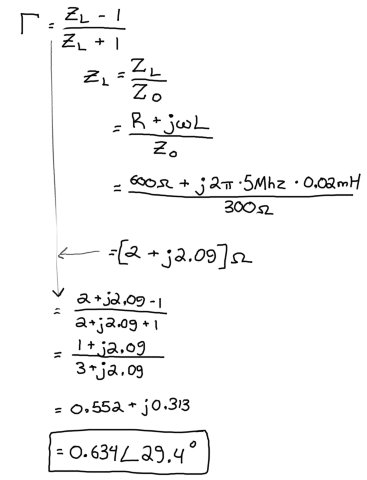 Γ = (Z_L - 1)/(Z_L + 1)
z_L = Z_L/Z_0
= (R + jωL)/Z_0
= (600Ω + j2π·5Mhz·0.02mH)/300Ω
= [2 + j2.09]Ω
= (2+j2.09-1)/(2+j2.09+1)
= (1+j2.09)/(3+j2.09)
= 0.552 + j0.313
= 0.634∠29.4°